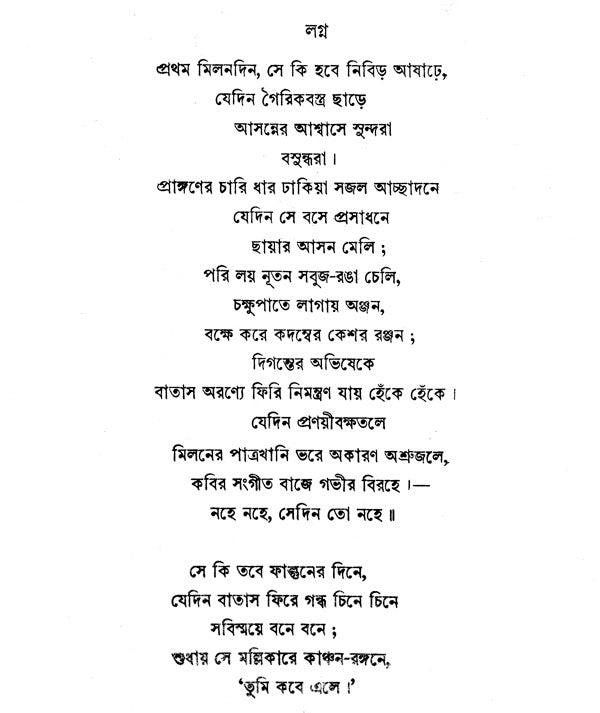 লগ্ন
প্রথম মিলনদিন, সে কি হবে নিবিড় আষাঢ়ে,
যেদিন গৈরিকবস্ত্র ছাড়ে
আসন্নের আশ্বাসে সুন্দরা
বসুন্ধরা।
প্রাঙ্গণের চারি ধার ঢাকিয়া সজল আচ্ছাদনে
যেদিন সে বসে প্রসাধনে
ছায়ার আসন মেলি ;
পরি লয় নূতন সবুজ-রঙা চেলি,
চক্ষুপাতে লাগায় অঞ্জন,
বক্ষে করে কদম্বের কেশর রঞ্জন ;
দিগন্তের অভিষেকে
বাতাস অরণ্যে ফিরি নিমন্ত্রণ যায় হেঁকে হেঁকে।
যেদিন প্রণয়ীবক্ষতলে
মিলনের পাত্রখানি ভরে অকারণ অশ্রুজলে,
কবির সংগীত বাজে গভীর বিরহে।—
নহে নহে, সেদিন তো নহে॥
সে কি তবে ফাল্গুনের দিনে,
যেদিন বাতাস ফিরে গন্ধ চিনে চিনে
সবিস্ময়ে বনে বনে ;
শুধায় সে মল্লিকারে কাঞ্চন-রঙ্গনে,
‘তুমি কবে এলে।’